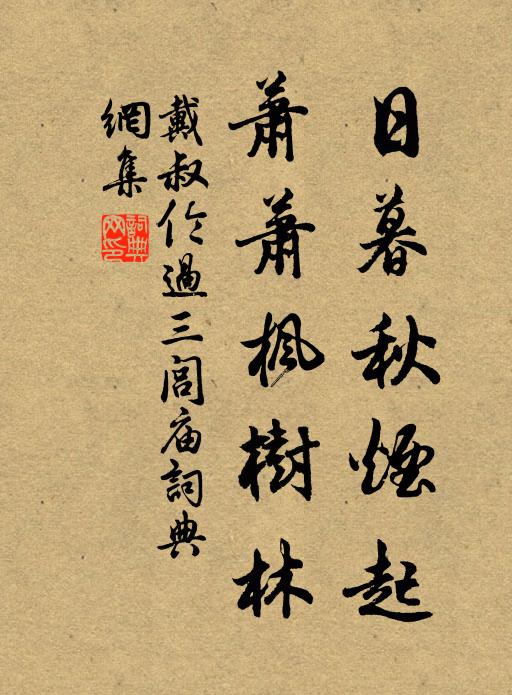 日暮秋煙起
蕭蕭楓樹林
戴叔伦過三閭庙詞典
網集
詞典网印